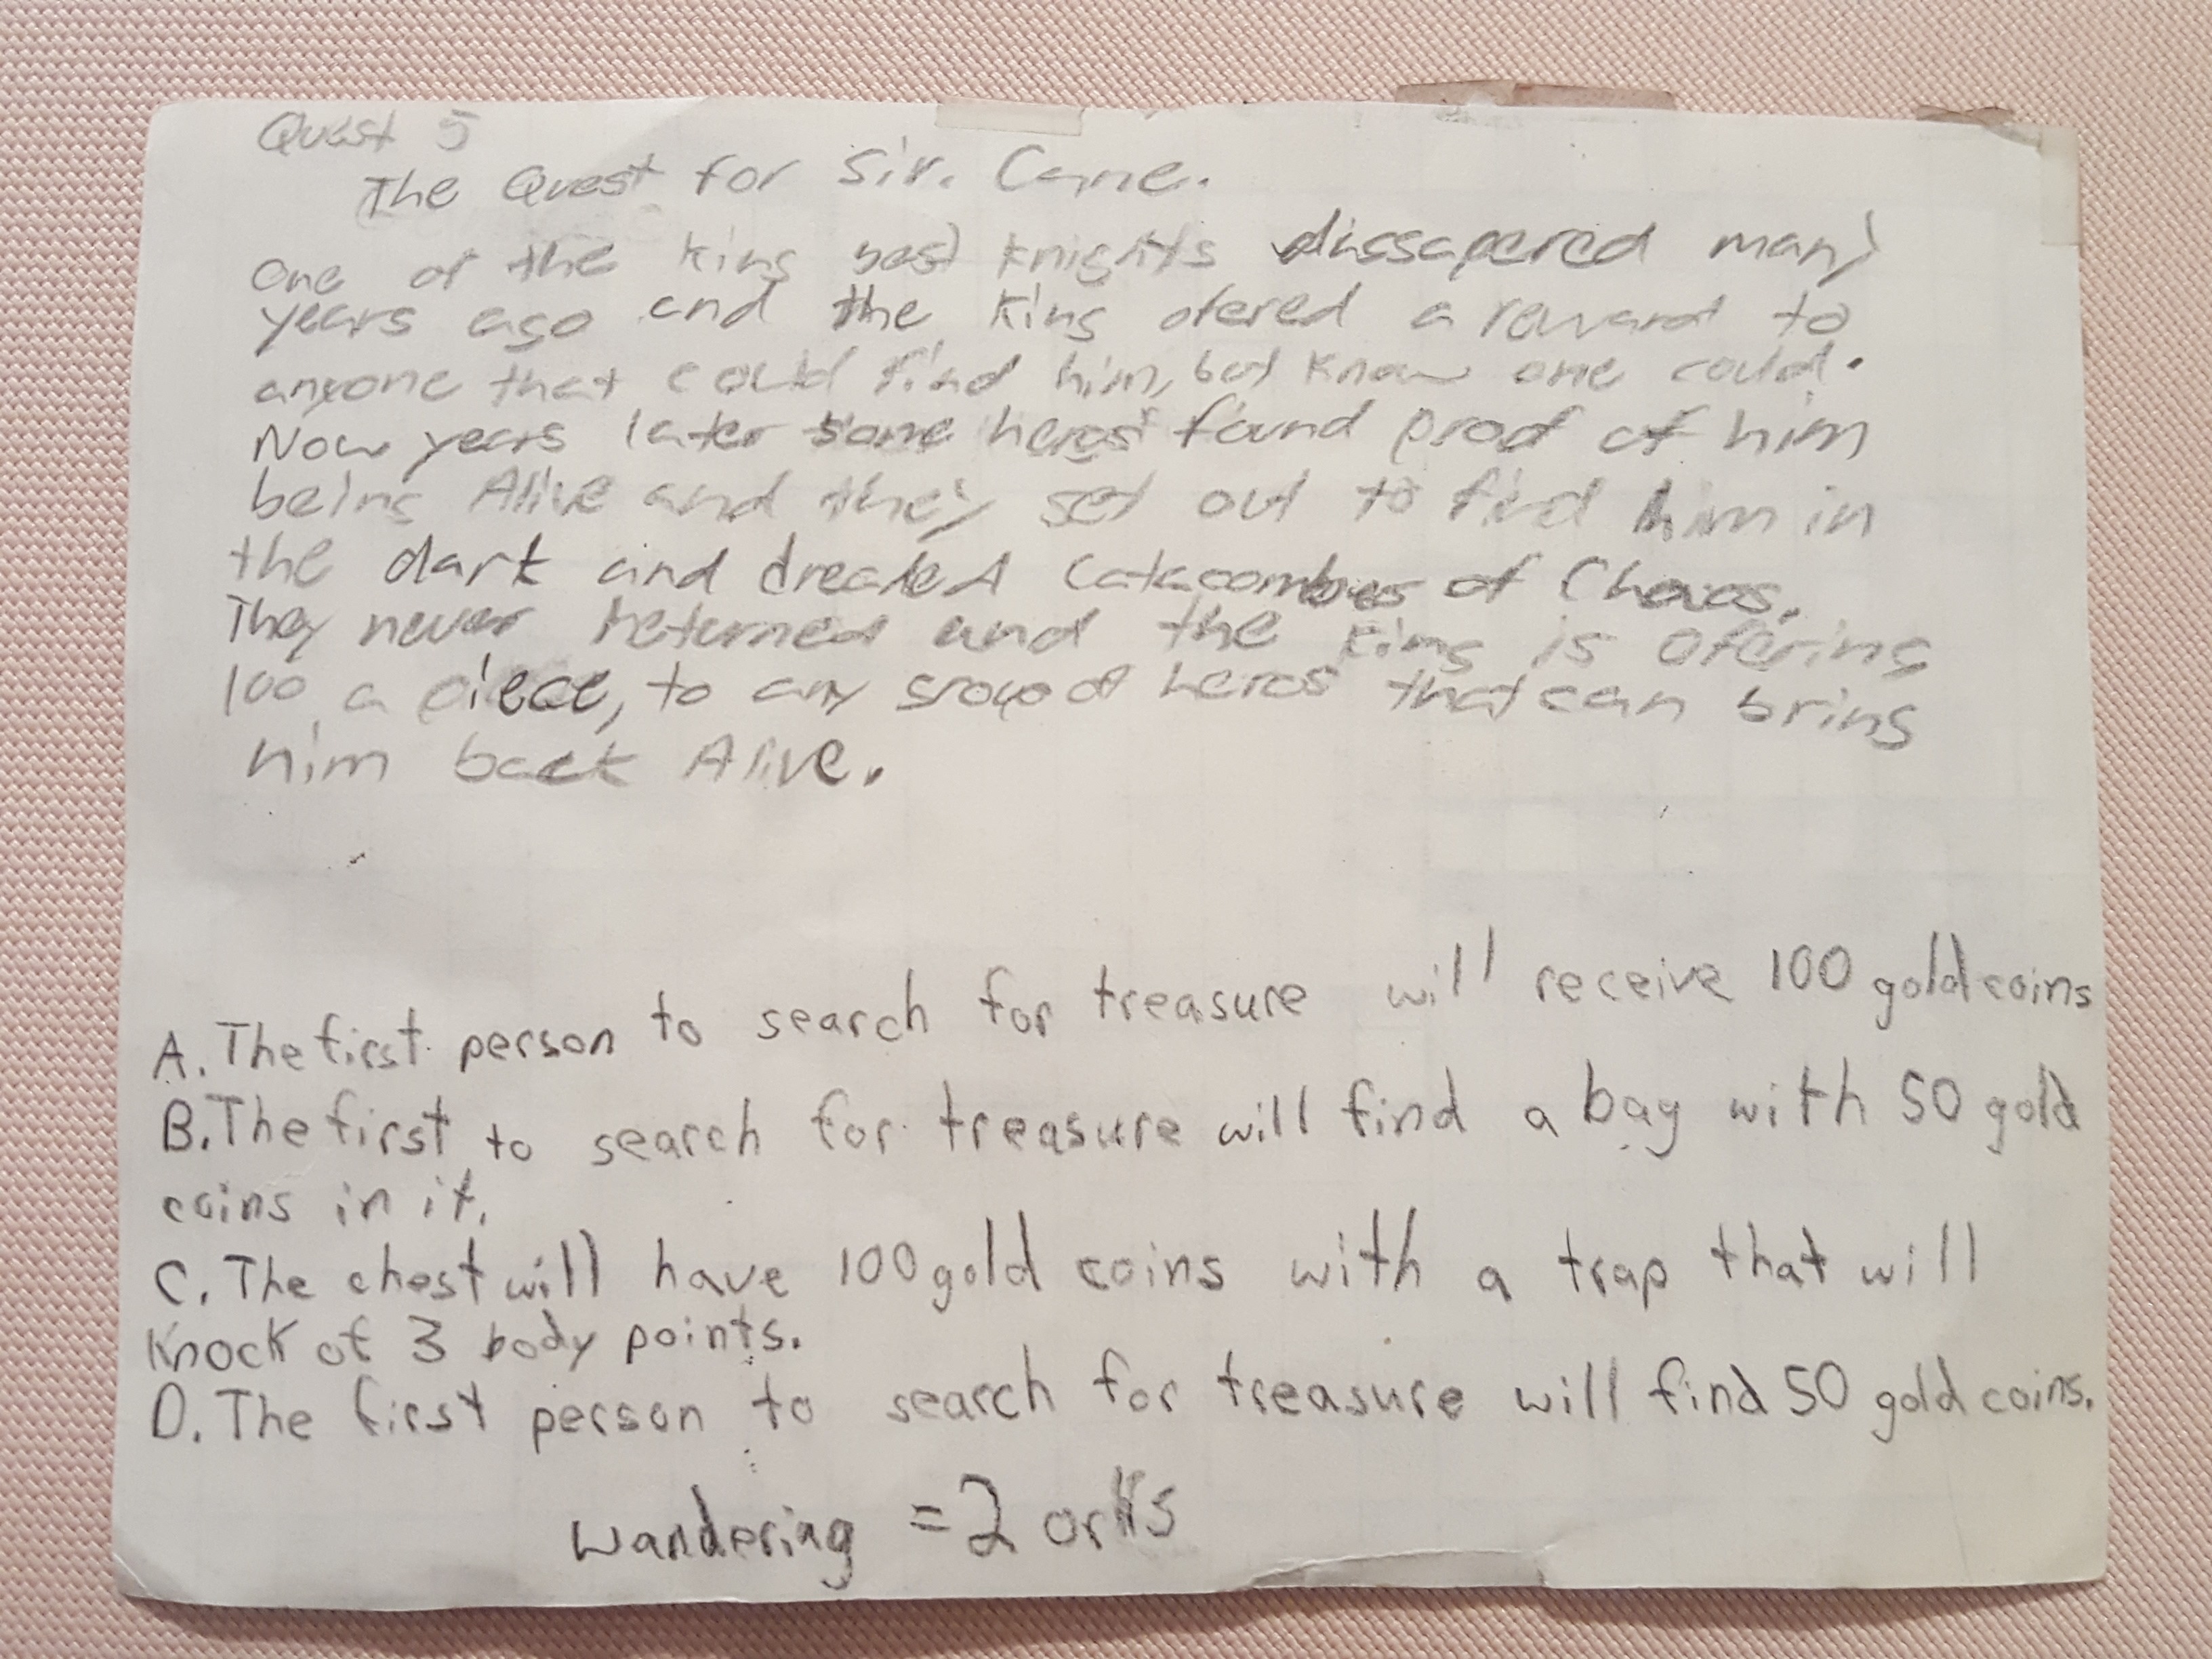 Quest 5
The Quest for Sir. Cane.
One of the King best Knights dissapered many
years ago and the King ofered a reward to
anyone that could find him, but Know one could.
Now years later some heros found proof of him
being Alive and they set out to find him in
the dark and dreaded Catacombes of Chaos.
They never returned and the King is ofering
100 a piece, to any group of heros that can bring
him back Alive.
A. The first person to search for treasure will receive 100 gold coins
B. The first to search for treasure will find a bag with 50 gold
coins in it.
C. The chest will have 100 gold coins with a trap that will
Knock of 3 body points.
D. The first person to search for treasure will find 50 gold coins.
wandering = 2 orks